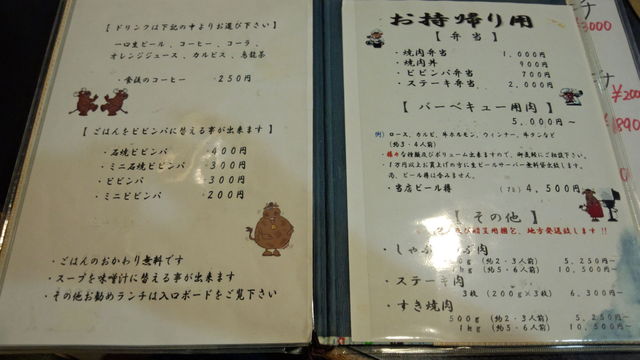 【ドリンクは下記の中よりお選び下さい】
一口生ビール、コーヒー、コーラ、
オレンジジュース、カルピス、烏龍茶
・食後のコーヒー ・250円
【ごはんをビビンバに替える事が出来ます】
・石焼ビビンバ ・400円
・ミニ石焼ビビンバ ・300円
・ビビンバ ・300円
・ミニビビンバ ・200円
・ごはんのおかわり無料です
・スープを味噌汁に替える事が出来ます
・その他お勧めランチは入口ボードをご覧下さい
お持帰り用
【弁当】
・焼肉弁当 1,000円
・焼肉丼 900円
・ビビンバ弁当 700円
・ステーキ弁当 2,000円
【バーベキュー用肉】
5,000円～
例）ロース、カルビ、牛ホルモン、ウィンナー、牛タンなど
（約3・4人前）
・様々な種類及びボリューム出来ますので、御気軽にご相談下さい。
1万円以上お買上げの方に生ビールサーバー無料貸出致します。
尚、ビール樽は含みません。
・当店ビール樽 （7ℓ） 4,500円
【その他】
用梱包、地方発送致します!!
・しゃぶ 肉
g （約2・3人前） 5,250円～
（約5・6人前） 10,500円～
・ステーキ肉
3枚（200g×3枚） 6,300円～
・すき焼肉
500g （約2・3人前） 5,250円～
1kg （約5・6人前） 10,500円～
チ
3000
チ
¥200
¥890